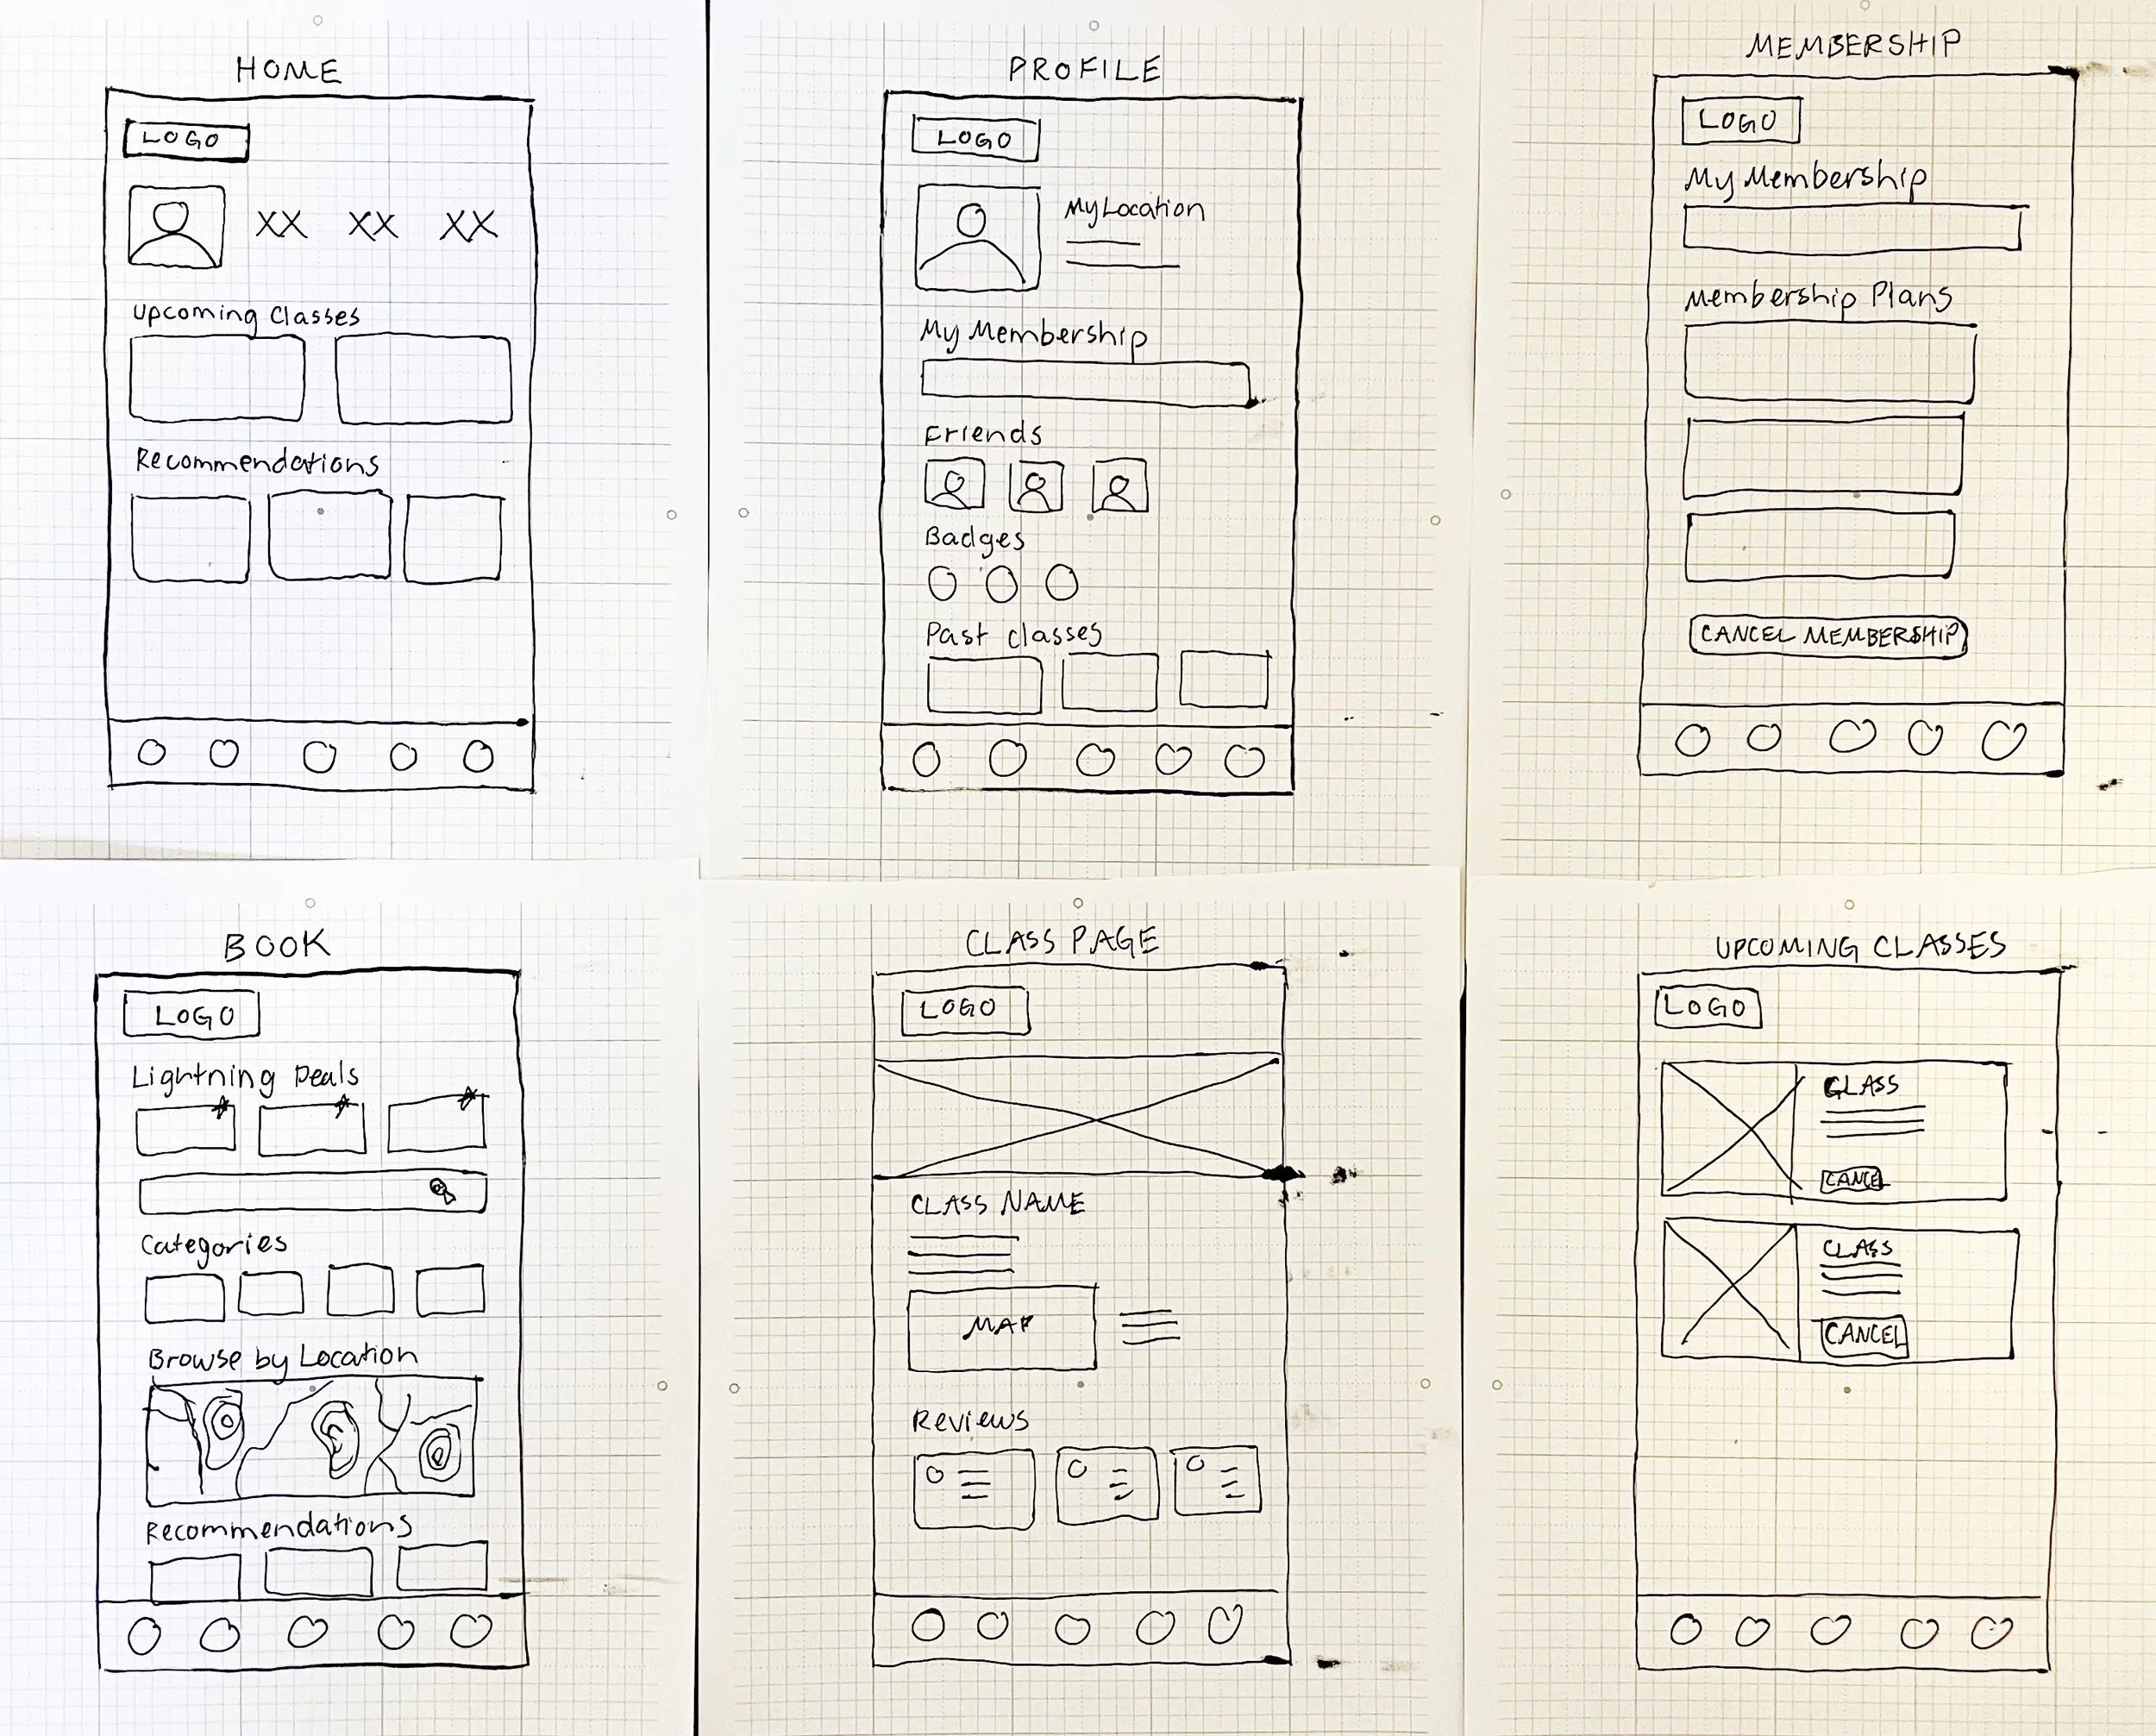 HOME
LOGO
XX XX XX
Upcoming Classes
Recommendations
PROFILE
LOGO
My Location
My Membership
Friends
Badges
Past classes
MEMBERSHIP
LOGO
My Membership
Membership Plans
CANCEL MEMBERSHIP
BOOK
LOGO
Lightning Deals
Categories
Browse by Location
Recommendations
CLASS PAGE
LOGO
CLASS NAME
MAP
Reviews
UPCOMING CLASSES
LOGO
CLASS
CANCEL
CLASS
CANCEL